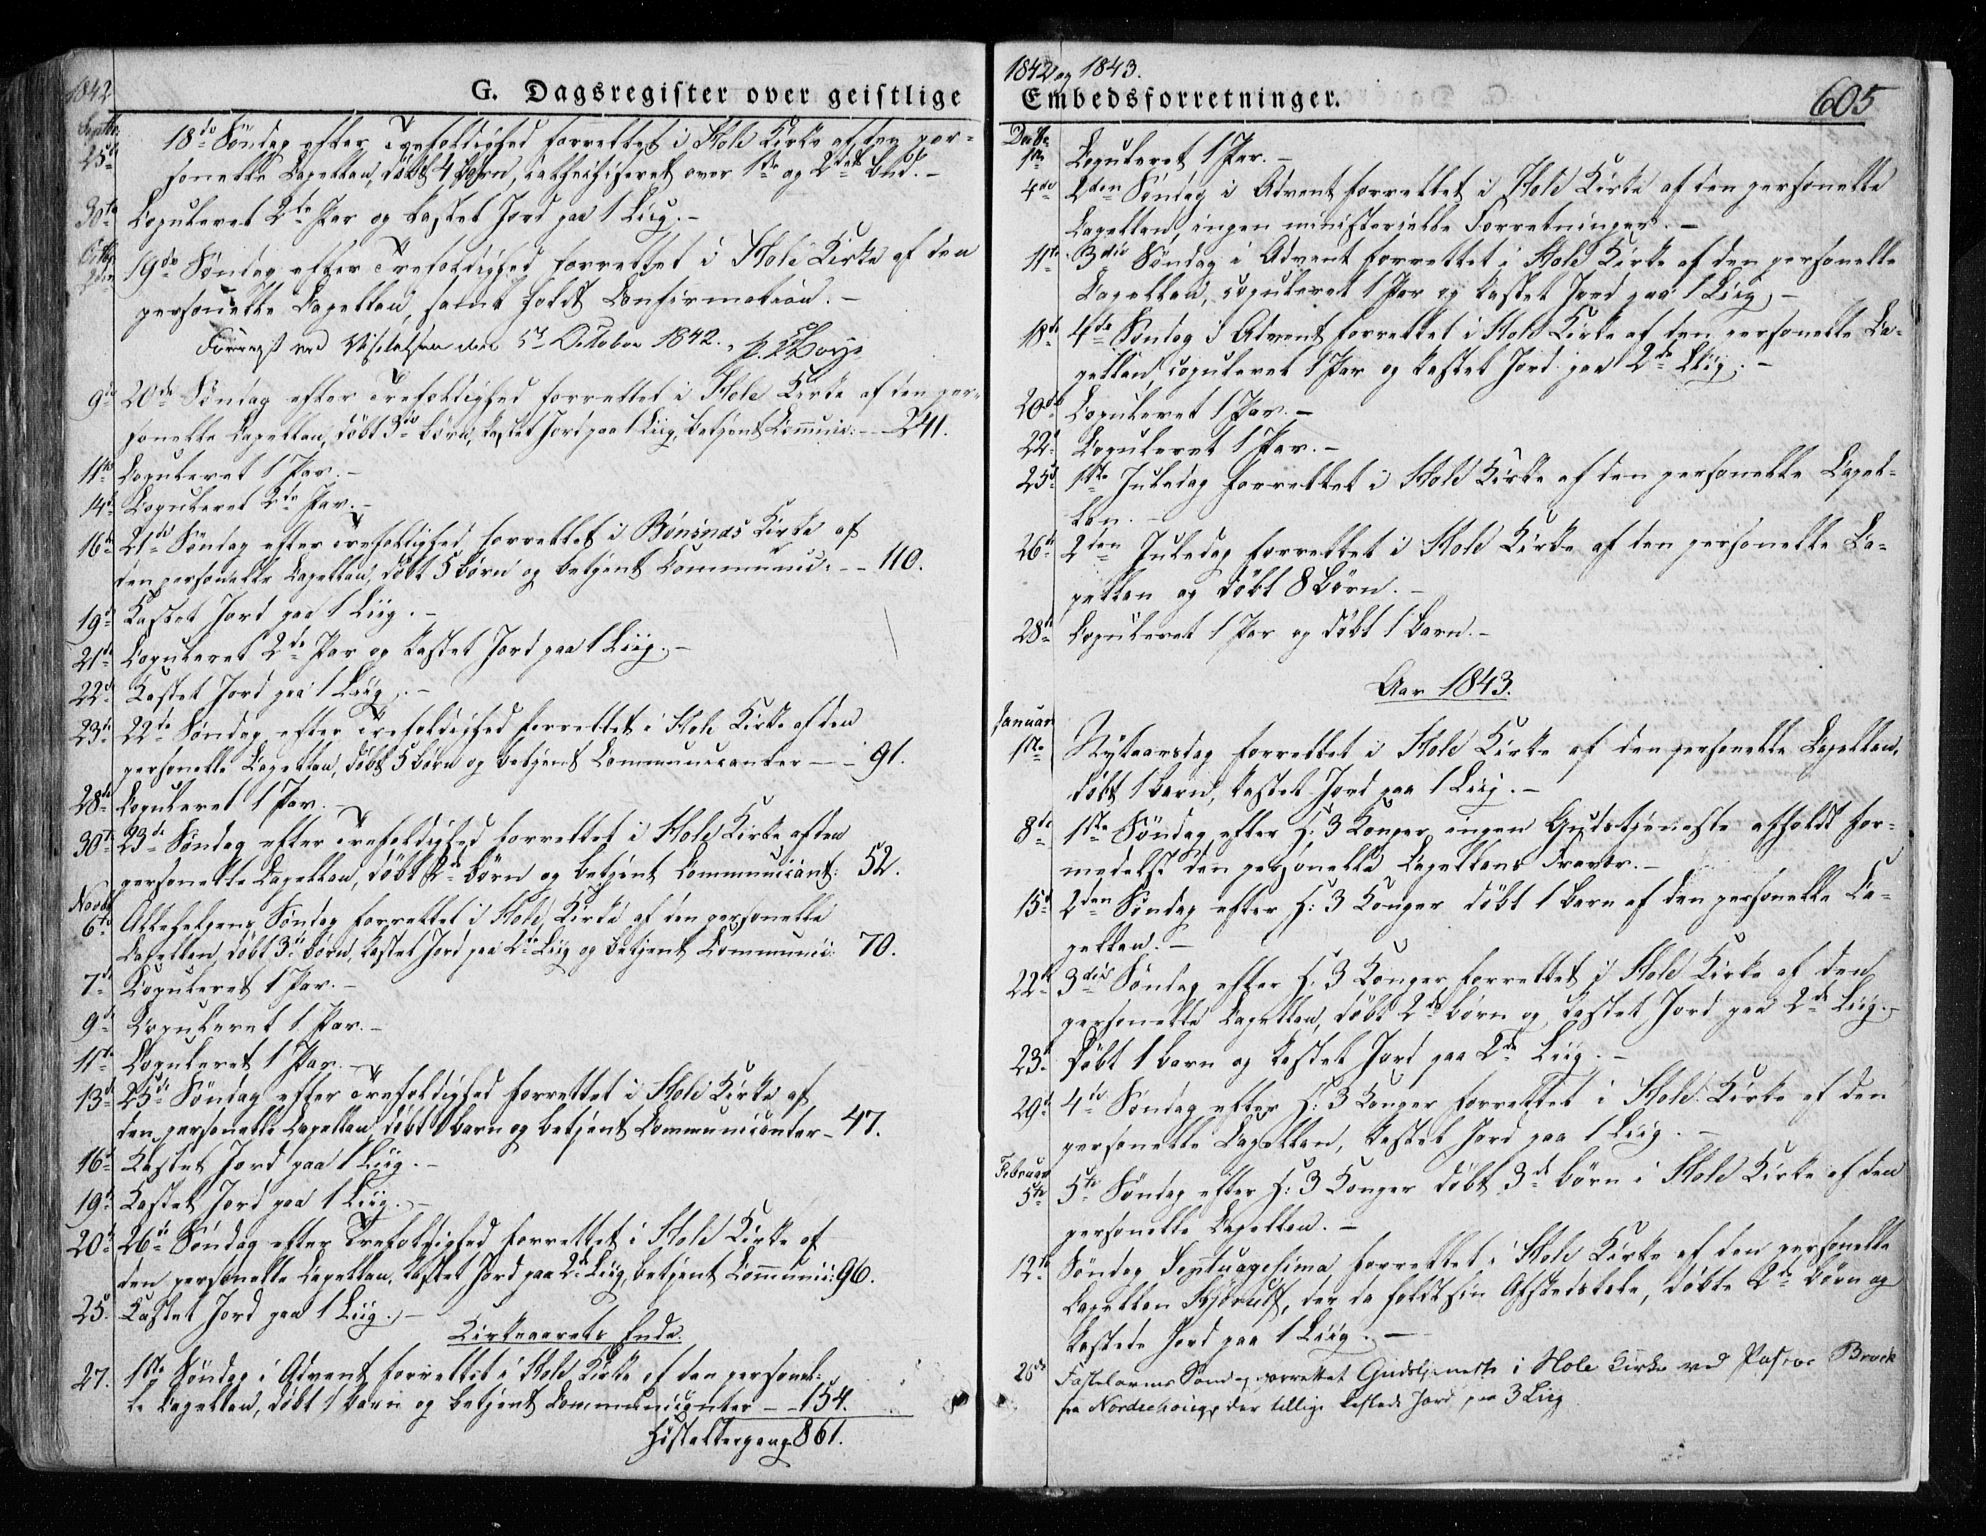 1842
G. Dagsregister over geistlige
Septbr
25de 18de Søndag efter Trefoldighed forrettet i Hole Kirke af den per-
sonelle Capellan, døbt 4 børn, catheciseret over 1ste og 2det bud. -
30te Copuleret 2de Par og kastet Jord paa 1 Liig. -
Octbr
2den 19de Søndag efter Trefoldighed forrettet i Hole Kirke af den
personelle Capellan, samt holdt Confirmation. -
ved Visitatsen den 5te October 1842.
9de 20de Søndag efter Trefoldighed forrettet i Hole Kirke af den per-
sonelle Capellan, døbt 3de børn, kastet Jord paa 1 Liig, betjent Communic: - - 241.
11te Copuleret 1 Par. -
14de Copuleret 2de Par. -
16de 21de Søndag efter Trefoldighed forrettet i Bønsnæs Kirke af
den personelle Capellan, døbt 5 børn og betjent Communic: - - 110.
19de Kastet Jord paa 1 Liig. -
21de Copuleret 2de Par og kastet Jord paa 1 Liig. -
22de Kastet Jord paa 1 Liig. -
23de 22de Søndag efter Trefoldighed forrettet i Hole Kirke af den
personelle Capellan, døbt 5 børn og betjent Communicanter - - 91.
28de Copuleret 1 Par. -
30te 23de Søndag efter Trefoldighed forrettet i Hole Kirke af den
personelle Capellan, døbt 2de børn og betjent Communicant: 52.
Novbr
6te Allehelgens Søndag forrettet i Hole Kirke af den personelle
Capellan, døbt 3de børn, kastet Jord paa 2de Liig og betjent Communic: 70.
7de Copuleret 1 Par. -
9de Copuleret 1 Par. -
11te Copuleret 1 Par. -
13de 25de Søndag efter Trefoldighed forrettet i Hole Kirke af
den personelle Capellan, døbt 1 barn og betjent Communicanter - 47.
16de Kastet Jord paa 1 Liig. -
19de Kastet Jord paa 1 Liig. -
20de 26de Søndag efter Trefoldighed forrettet i Hole Kirke af
den personelle Capellan, kastet Jord paa 2de Liig, betjent Communic: 96.
25. Kastet Jord paa 1 Liig. -
Kirkeaarets Ende.
27. 1ste Søndag i Advent forrettet i Hole Kirke af den personel-
le Capellan, døbt 1 barn og betjent Communicanter - - 154.
861.
1842 og 1843.
Embedsforretninger.
605
Decbr
1ste Copuleret 1 Par. -
4de 2den Søndag i Advent forrettet i Hole Kirke af den personelle
Capellan, ingen ministerielle Forretninger. -
11te 3die Søndag i Advent forrettet i Hole Kirke af den personelle
Capellan, copuleret 1 Par og kastet Jord paa 1 Liig. -
18de 4de Søndag i Advent forrettet i Hole Kirke af den personelle Ca-
pellan, copuleret 1 Par og kastet Jord paa 2de Liig. -
20de Copuleret 1 Par. -
22. Copuleret 1 Par. -
25de 1ste Juledag forrettet i Hole Kirke af den personelle Capel-
lan. -
26de 2den Juledag forrettet i Hole Kirke af den personelle Ca-
pellan og døbt 8 Børn. -
28de Copuleret 1 Par og døbt 1 barn. -
Aar 1843.
Januar
1ste Nytaarsdag forrettet i Hole Kirke af den personelle Capellan,
døbt 1 barn, kastet Jord paa 1 Liig. -
8de 1ste Søndag efter H: 3 Konger ingen Gudstjeneste afholdt for-
medelst den personelle Capellans Fravær. -
15de 2den Søndag efter H: 3 Konger døbt 1 barn af den personelle Ca-
pellan. -
22de 3die Søndag efter H: 3 Konger forrettet i Hole Kirke af den
personelle Capellan, døbt 2de børn og kastet Jord paa 2de Liig. -
23de Døbt 1 barn og kastet Jord paa 2de Liig. -
29de 4de Søndag efter H: 3 Konger forrettet i Hole Kirke af den
personelle Capellan, kastet Jord paa 1 Liig. -
Februar
5te 5te Søndag efter H: 3 Konger døbt 3de børn i Hole Kirke af den
personelle Capellan. -
12te Søndag Septuagesima forrettet i Hole Kirke af den personelle
Capellan, der da holdt sin Afskedstale, døbte 2de børn og
kastede Jord paa 1 Liig. -
26de Fastelavns Søndag forrettet Gudstjeneste i Hole Kirke ved Pastor
fra Norderhoug, der tillige kastede Jord paa 3 Liig